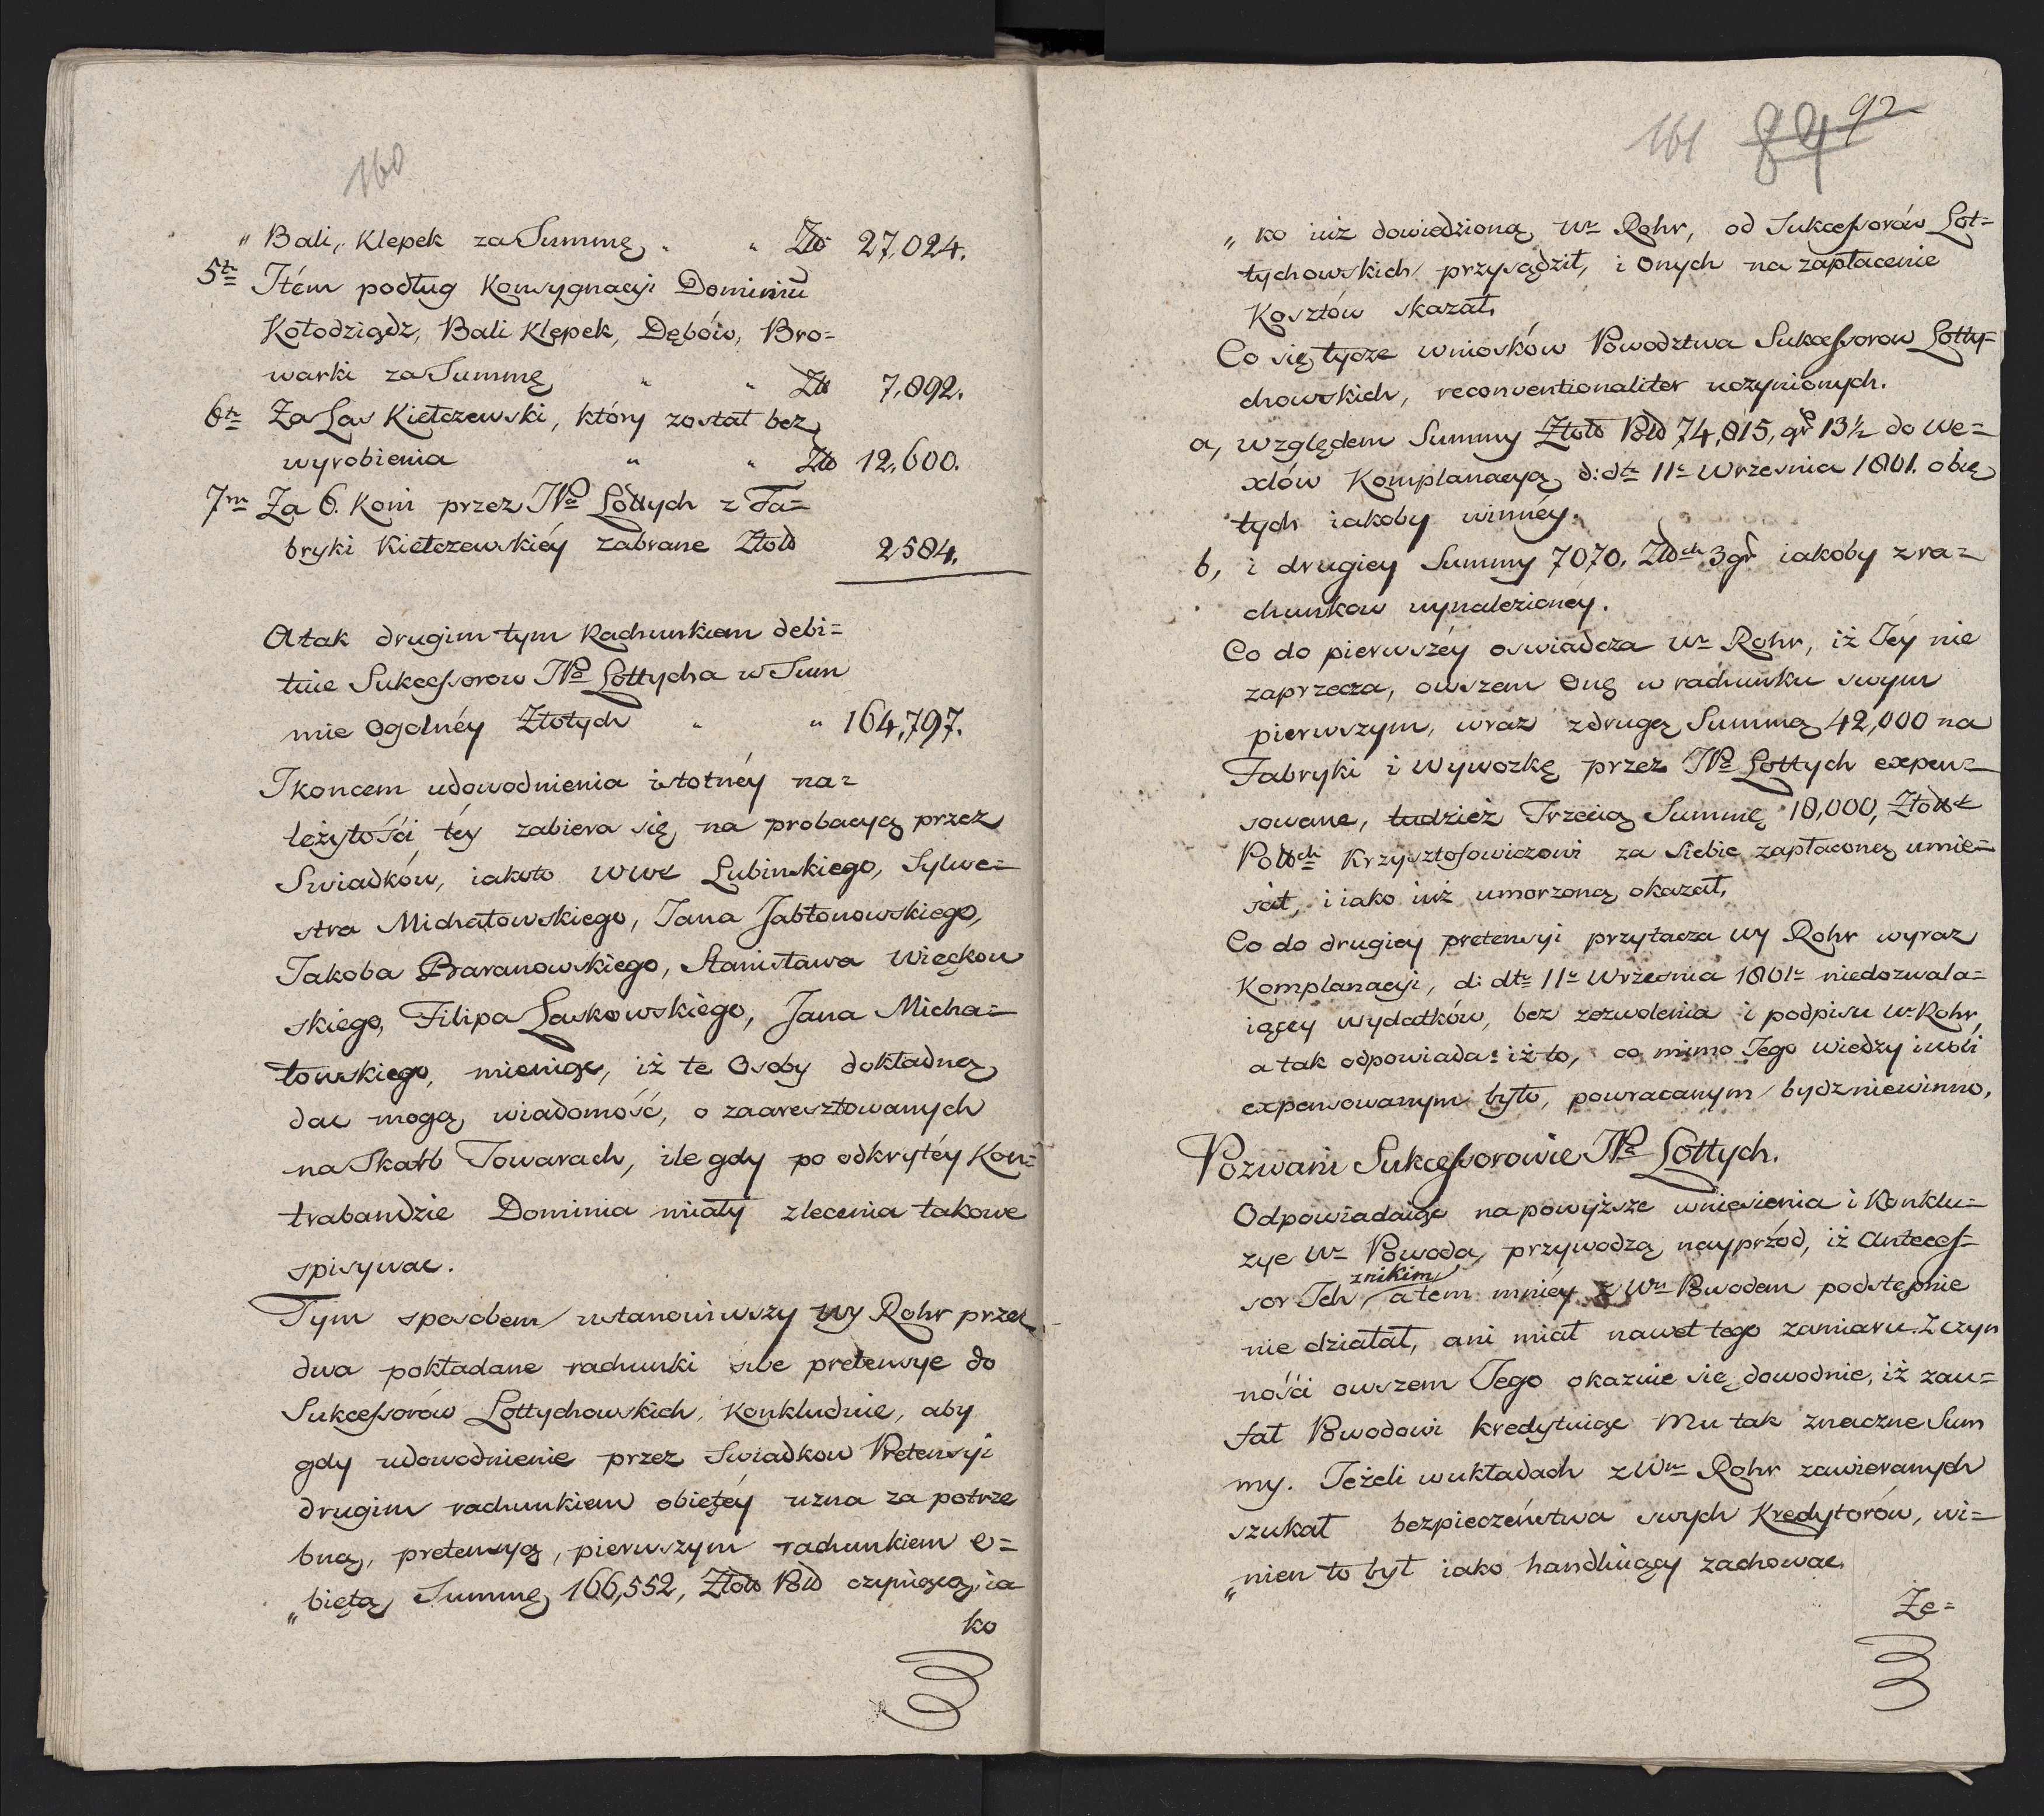 160
" Bali, Klepek za Summę " " Złł 27,024.
5te Item podług Konsygnacyi Dominiu
Kołodziądz, Bali Klepek, Dębów, Bro=
warki za Summę " " Złł 7,892.
6te Za Las Kiełczewski, który został bez
wyrobienia " " Złł 12,600.
7me Za 6. Koni przez Np Lottych z Fa=
bryki Kiełczewskiéy zabrane Złoł 2584.
A tak drugim tym Rachunkiem debi=
tuie Sukcessorow Np Lottycha w Sum
mie Ogólnéy Złotych " " 164,797.
I koncem udowodnienia istotnéy na=
leżytości téy zabiera się na probacyą przez
Swiadków, iakoto WWs Lubinskiego, Sylwe=
stra Michałowskiego, Jana Jabłonowskiego,
Jakoba Baranowskiego, Stanisława Więckow
skiego, Filipa Laskowskiego, Jana Micha=
łowskiego, mieniąc, iż te Osoby dokładną
dac mogą wiadomość, o zaaresztowanych
na Skarb Towarach, ile gdy po odkrytéy Kon=
trabandzie Dominia miały zlecenia takowe
spisywac.
Tym sposobem ustanowiwszy Wy Rohr przez
dwa pokładane rachunki swe pretensye do
Sukcessorów Lottychowskich, Konkluduie, aby
gdy udowodnienie przez Swiadkow Pretensyi
drugim rachunkiem obiętéy uzna za potrze
bną, pretensyą, pierwszym rachunkiem o=
" biętą Summę 166,552, Złoł Pol czyniącą, ia
ko
161 84 92
" ko iuż dowiedzioną Wr Rohr, od Sukcessorów Lot=
tychowskich przysądził, i Onych na zapłacenie
Kosztów skazał.
Co się tycze wniosków Powodztwa Sukcessorow Lotty=
chowskich, reconventionaliter uczynionych.
a, względem Summy Złoł Pol 74,815, gr 13½ do We=
xlów Komplanacyą d: dto 11o Wrzesnia 1801. obię
tych iakoby winnéy.
b, i drugiey Summy 7070. Złłch 3 gr iakoby z ra=
chunkow wynalezionéy.
Co do pierwszéy oswiadcza Wr Rohr, iż Jéy nie
zaprzecza, owszem Onę w rachunku swym
pierwszym, wraz z drugą Summą 42,000 na
Fabryki i Wywozkę przez Np Lottych expen=
sowane, tudzież Trzecią Summę 18,000, Złotch
Polch Krzysztofowiczowi za siebie zapłaconą umie=
scił, i iako iuż umorzoną okazał.
Co do drugiey pretensyi przytacza Wy Rohr wyraz
Komplanacyi, d: dto 11o Wrzesnia 1801o niedozwala=
iącey wydatków, bez zezwolenia i podpisu Wo Rohr,
a tak odpowiada: iż to, co mimo Jego wiedzy i woli
expensowanym było, powracanym bydz niewinno.
Pozwani Sukcessorowie Np Lottych.
Odpowiadaiąc na powyższe wniesienia i Konklu=
zye Wo Powoda, przywodzą nayprzód, iż Anteces=
sor Ich z nikim a tem mniéy z Wm Powodem podstępnie
nie działał, ani miał nawet tego zamiaru. Z czyn
ności owszem Jego okazuie się dowodnie, iż zau=
fał Powodowi kredytuiąc Mu tak znaczne Sum
my. Jeżeli w układach z Wm Rohr zawieranych
szukał bezpieczeństwa swych Kredytorów, wi=
" nien to był iako handluiący zachowac.
Że=